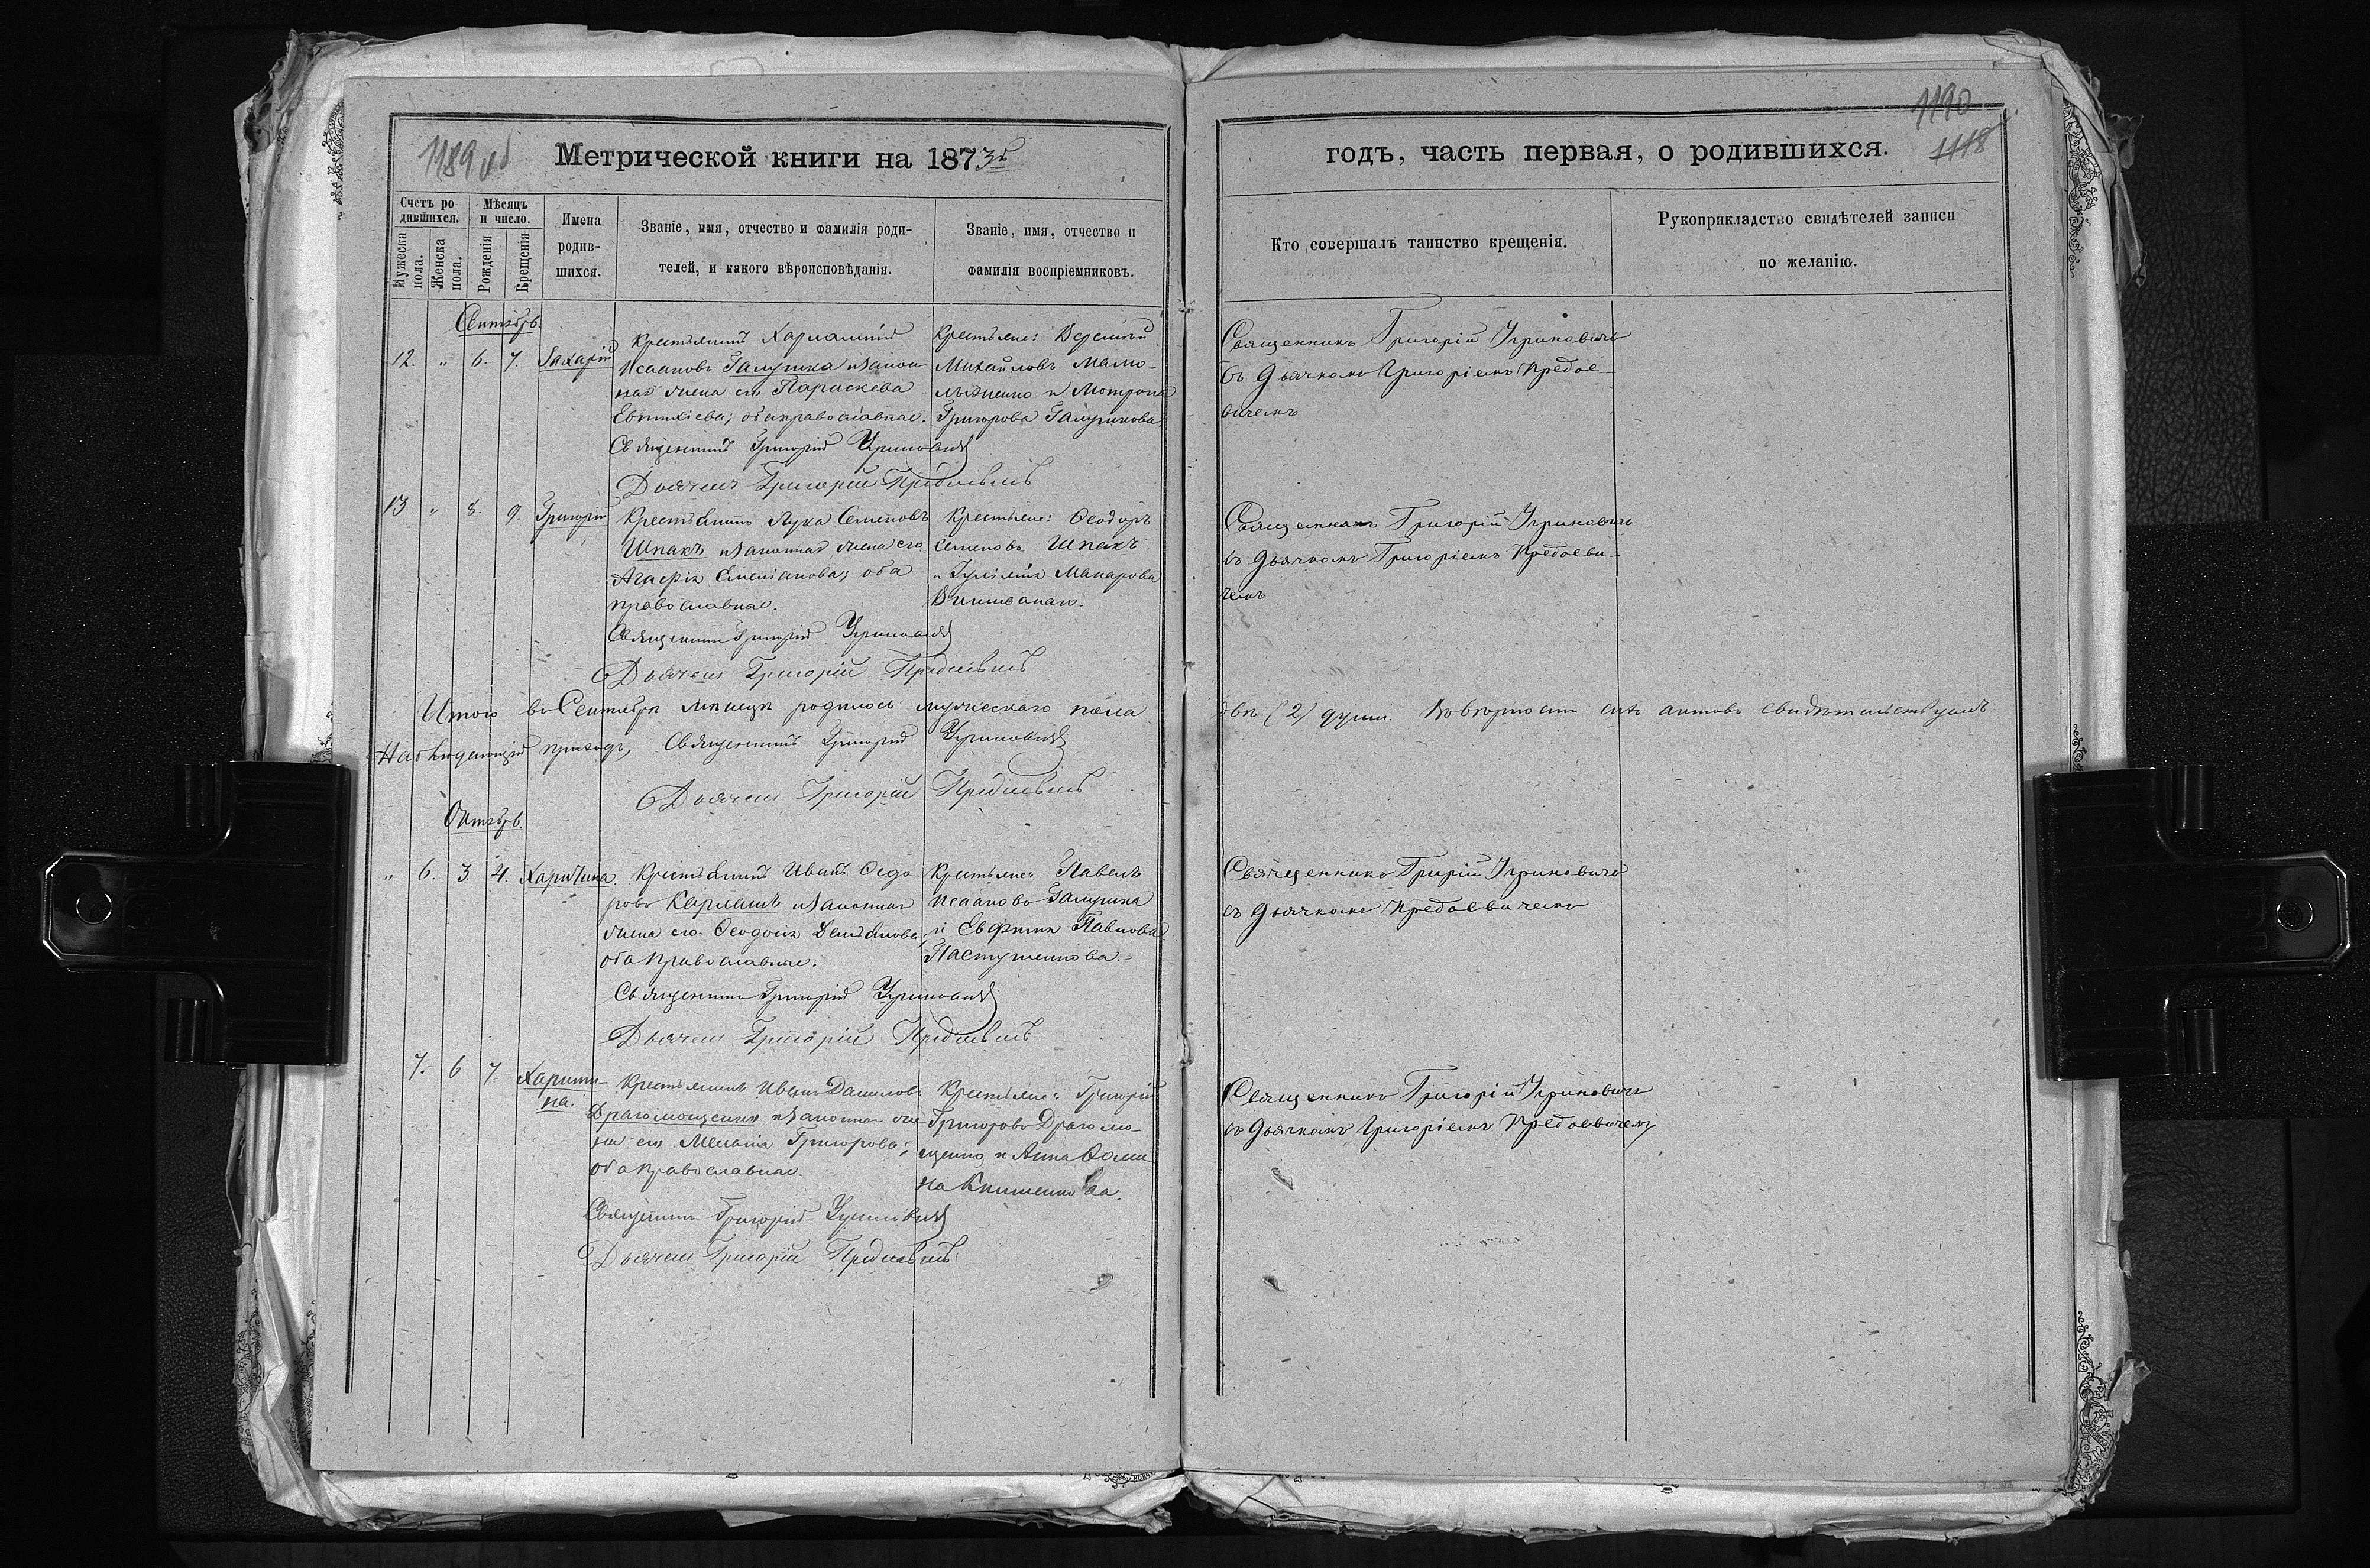 1189 об
Метрической книги на 1873й
Счетъ ро
дившихся.
Мѣсяцъ
и число.
Мужеска
пола.
Женска
пола.
Рожденія
Крещенія
Имена
родив-
шихся.
Званіе, имя, отчество и фамилія роди-
телей, и какого вѣроисповѣданія.
Званіе, имя, отчество и
фамилія воспріемниковъ.
Сентябрь.
12. " 6. 7. Захарій
Крестьянинъ Харлампій
Исааковъ Галушка и закон-
ная жена его Параскева
Евтихіева; оба православные.
Священникъ Григорій Угриновичъ
Дьячекъ Григорій
Крестьяне:
Михайловъ
и Мотрона
Григорова Галушкова.
13 " 8. 9. Григорій
Крестьянинъ Лука Семеновъ
Шпакъ и законная жена его
Агафія Емеліанова; оба
православные.
Священникъ Григорій Угриновичъ
Дьячекъ Григорій
Крестьяне: Ѳеодоръ
Семеновъ Шпакъ
и Іуліанія Макарова
Итого въ Сентябрѣ мѣсяцѣ родилось мужескаго пола
Наблюдающій приходъ, Священникъ Григорій Угриновичъ
Дьячекъ Григорій
Октябрь.
" 6. 3 4. Харитина.
Крестьянинъ Иванъ Ѳедо
ровъ Карлашъ и законная
жена его Ѳеодосія
оба православные.
Священникъ Григорій Угриновичъ
Дьячекъ Григорій
Крестьяне: Павелъ
Исааковъ Галушка
и Евфимія Павлова
Пастушенкова.
7. 6 7. Харити-
на.
Крестьянинъ Иванъ Даниловъ
Драгомощенко и законная же-
на его Меланія Григорова;
оба православные.
Священникъ Григорій Угриновичъ
Дьячекъ Григорій
Крестьяне: Григорій
Григоровъ Драгомо-
щенко и Анна Ѳоми
на
1190
1118
годъ, часть первая, о родившихся.
Кто совершалъ таинство крещенія.
Рукоприкладство свидѣтелей записи
по желанію.
Священникъ Григорій Угриновичъ
съ дьячкомъ Григоріемъ Предое-
вичемъ
Священникъ Григорій Угриновичъ
съ дьячкомъ Григоріемъ Предоеви-
чемъ
двѣ (2) души. Въ вѣрности сихъ актовъ свидѣтельствуемъ.
Священникъ Григорій Угриновичъ
съ дьячкомъ Предоевичемъ
Священникъ Григорій Угриновичъ
съ дьячкомъ Григоріемъ Предоевичемъ